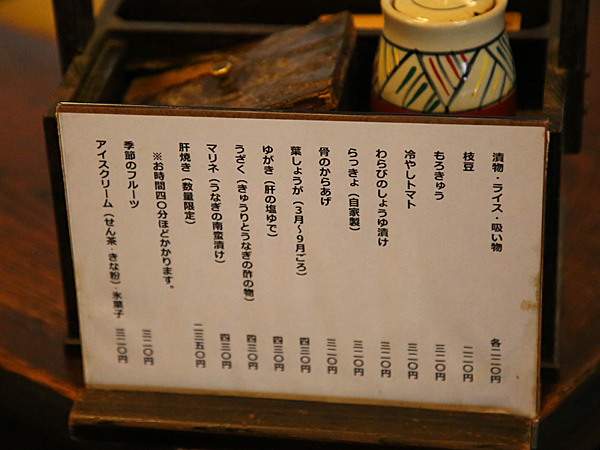 漬物・ライス・吸い物 各二二〇円
枝豆 二二〇円
もろきゅう 三二〇円
冷やしトマト 三二〇円
わらびのしょうゆ漬け 三二〇円
らっきょ（自家製） 三二〇円
骨のからあげ 三二〇円
葉しょうが（３月～９月ごろ） 四三〇円
ゆがき（肝の塩ゆで） 四三〇円
うざく（きゅうりとうなぎの酢の物） 四三〇円
マリネ（うなぎの南蛮漬け） 四三〇円
肝焼き（数量限定） 二三五〇円
※お時間四〇分ほどかかります。
季節のフルーツ 三二〇円
アイスクリーム（せん茶・きな粉）・氷菓子 三二〇円